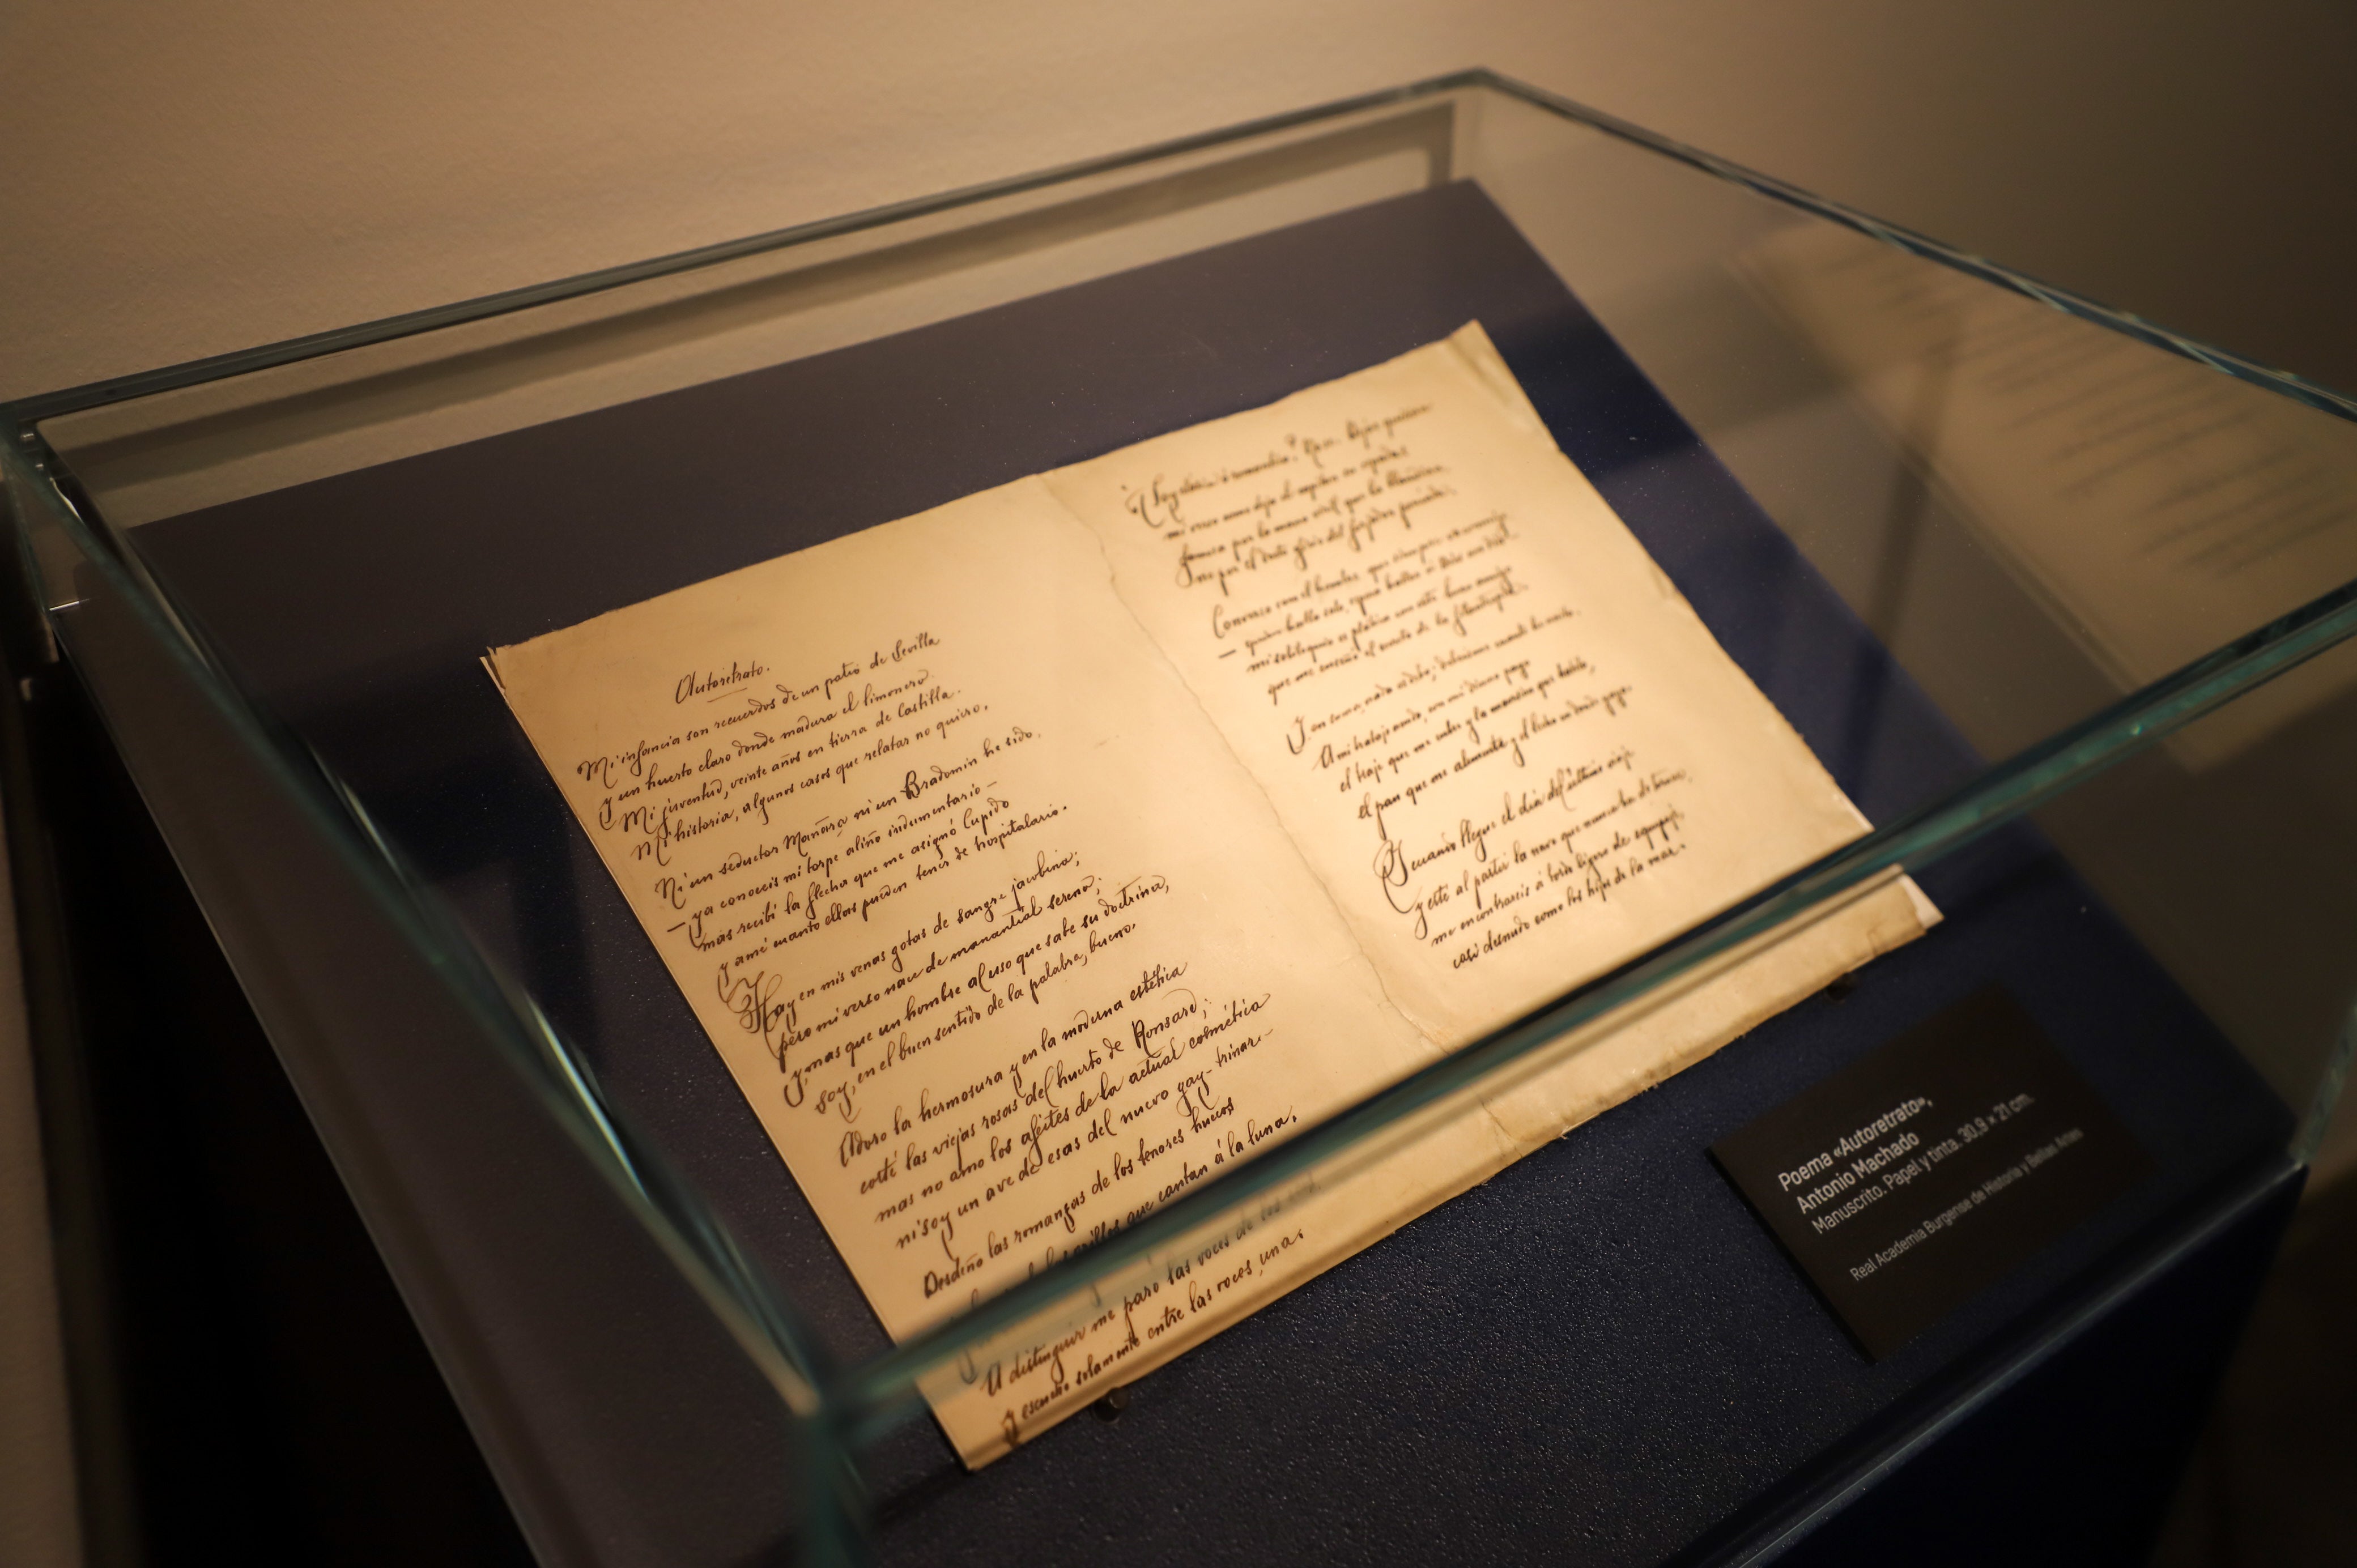 Autoretrato.
Mi infancia son recuerdos de un patio de Sevilla
y un huerto claro donde madura el limonero.
Mi juventud, veinte años en tierra de Castilla.
Mi historia, algunos casos que relatar no quiero.
Ni un seductor Mañara ni un Bradomin he sido.
— ya conoceis mi torpe aliño indumentario —
mas recibí la flecha que me asignó Cupido
y amé cuanto ellas pueden tener de hospitalario.
Hay en mis venas gotas de sangre jacobina;
pero mi verso nace de manantial sereno;
y, mas que un hombre al uso que sabe su doctrina,
soy, en el buen sentido de la palabra, bueno.
Adoro la hermosura y en la moderna estética
corté las viejas rosas del huerto de Ronsard;
mas no amo los afeites de la actual cosmética
ni soy un ave de esas del nuevo gay-trinar.
Desdeño las romanzas de los tenores huecos
grillos que cantan á la luna.
A distinguir me paro las voces de los
y escucho solamente entre las voces, una.
mi verso como deja el
famosa por la mano viril que la
no por el docto oficio del forjador
Converso con el hombre que siempre va conmigo
— quien habla solo, espera hablar á Dios un dia —
mi soliloquio es plática con este buen amigo
que me enseñó el secreto de la filantropía.
Y al cabo, nada os debo; debeisme cuanto he escrito.
A mi trabajo acudo, con mi dinero pago
el traje que me cubre y la mansión que habito,
el pan que me alimenta y el lecho en donde yago.
Y cuando llegue el dia del último viaje
y esté al partir la nave que nunca ha de tornar,
me encontrareis á bordo ligero de equipaje,
casi desnudo como los hijos de la mar.
Poema «Autoretrato»,
Antonio Machado
Manuscrito. Papel y tinta. 30,9 × 21 cm.
Real Academia Burgense de Historia y Bellas Artes